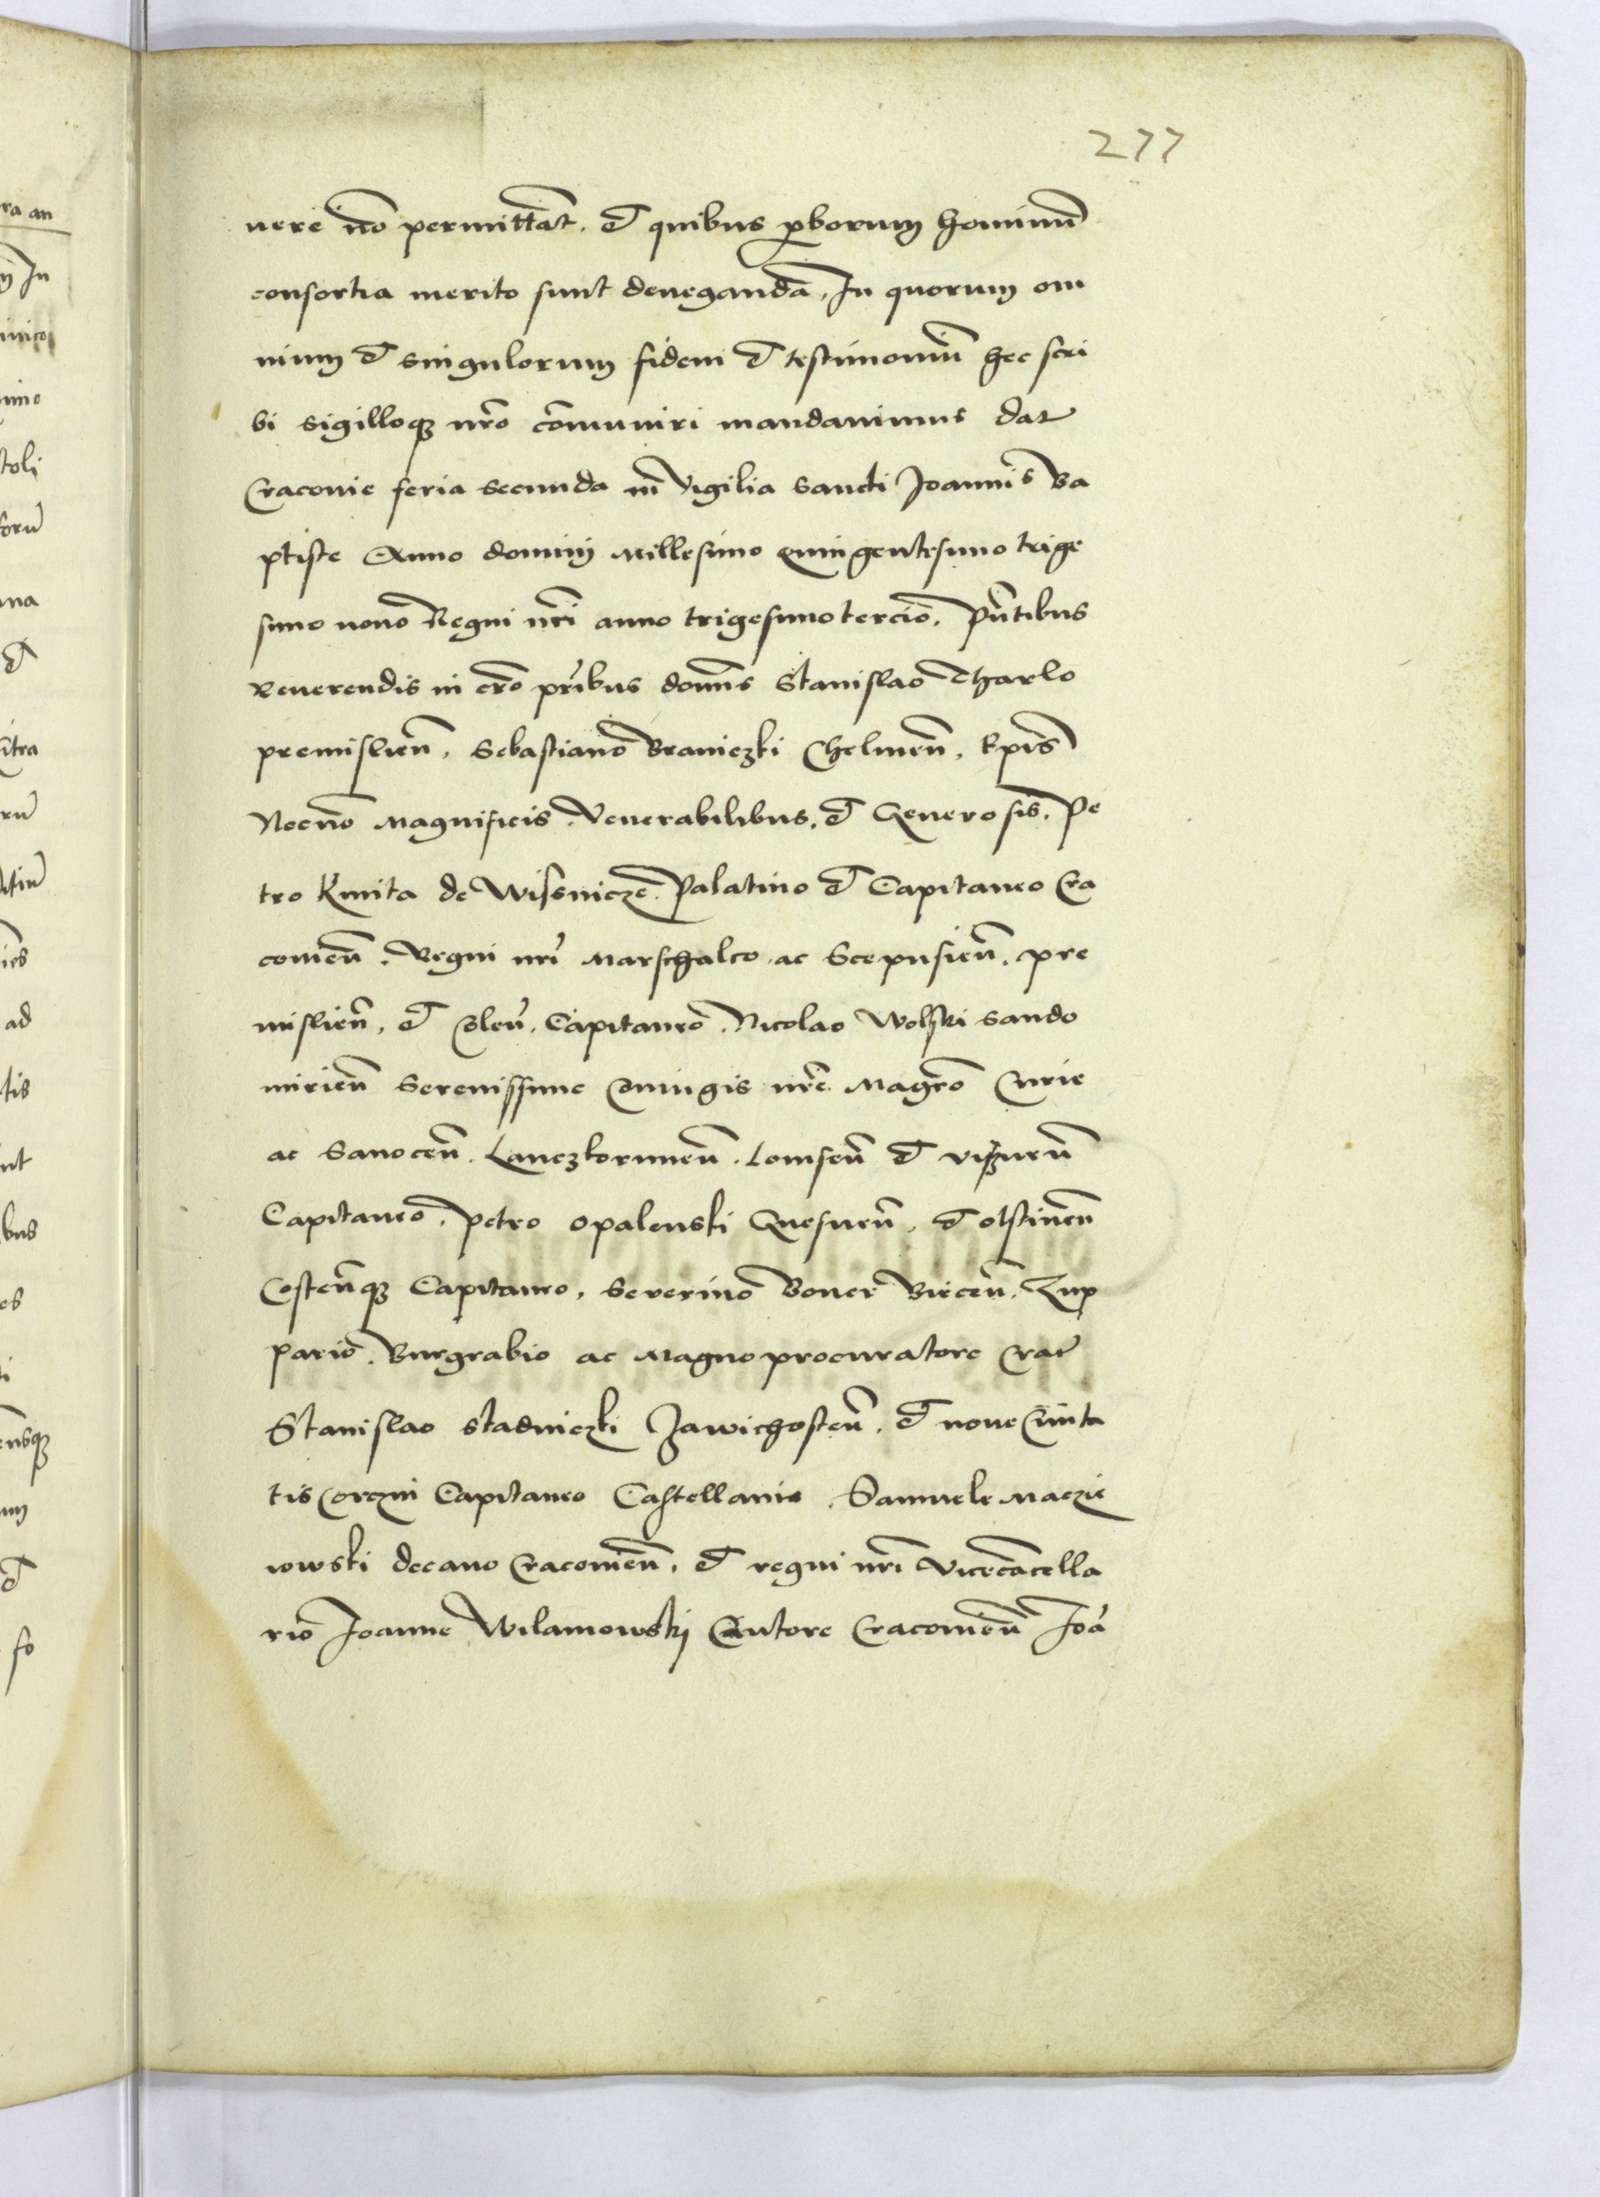 277
uere nō permittāt. et quibus ꝓborum hominū
consortia merito sunt deneganda, In quorum om
nium et singulorum fidem et testimoniū hec scri
bi sigilloqꝫ nrō cōmuniri mandauimus Dat
Cracouie feria secunda in vigilia Sancti Joannis Ba
ptiste Anno domini Millesimo Quingentesimo trige
simo nono Regni nrī anno trigesimotercio. Pñtibus
Reuerendis in crō pr̄ibus domīs Stanislao Tharlo
premislieñ. Sebastiano Braniczki Chelmeñ. Epīs
Necnō Magnificis. Venerabilibus. et Generosis. Pe
tro Kmita de Wisnicze Palatino et Capitaneo Cra
couieñ. Regni nrī Marschalco ac Scepusieñ. pre
mislieñ. et Coleñ. Capitaneo. Nicolao Wolski Sando
mirieñ Serenissime Coniugis nrē Magrō Curie
ac Sanoceñ. Lanczkoruneñ. Lomseñ et
Capitaneo. Petro Opalenski Gnesneñ. et olstineñ
Costeñqꝫ Capitaneo. Seuerino Boner Bieceñ. Zup
pario. Burgrabio ac Magno procuratore Craͨ
Stanislao Stadniczki Zawichosteñ. et noue Ciuita
tis Corczin Capitaneo Castellanis. Samuele Maczie
iowski decano Cracouieñ. et regni nrī Vicecācella
rio Joanne Wilamowskj Cantore Cracouieñ Joā
ra an
In
toli
na
et
ad
tis
bus
es
et
fo